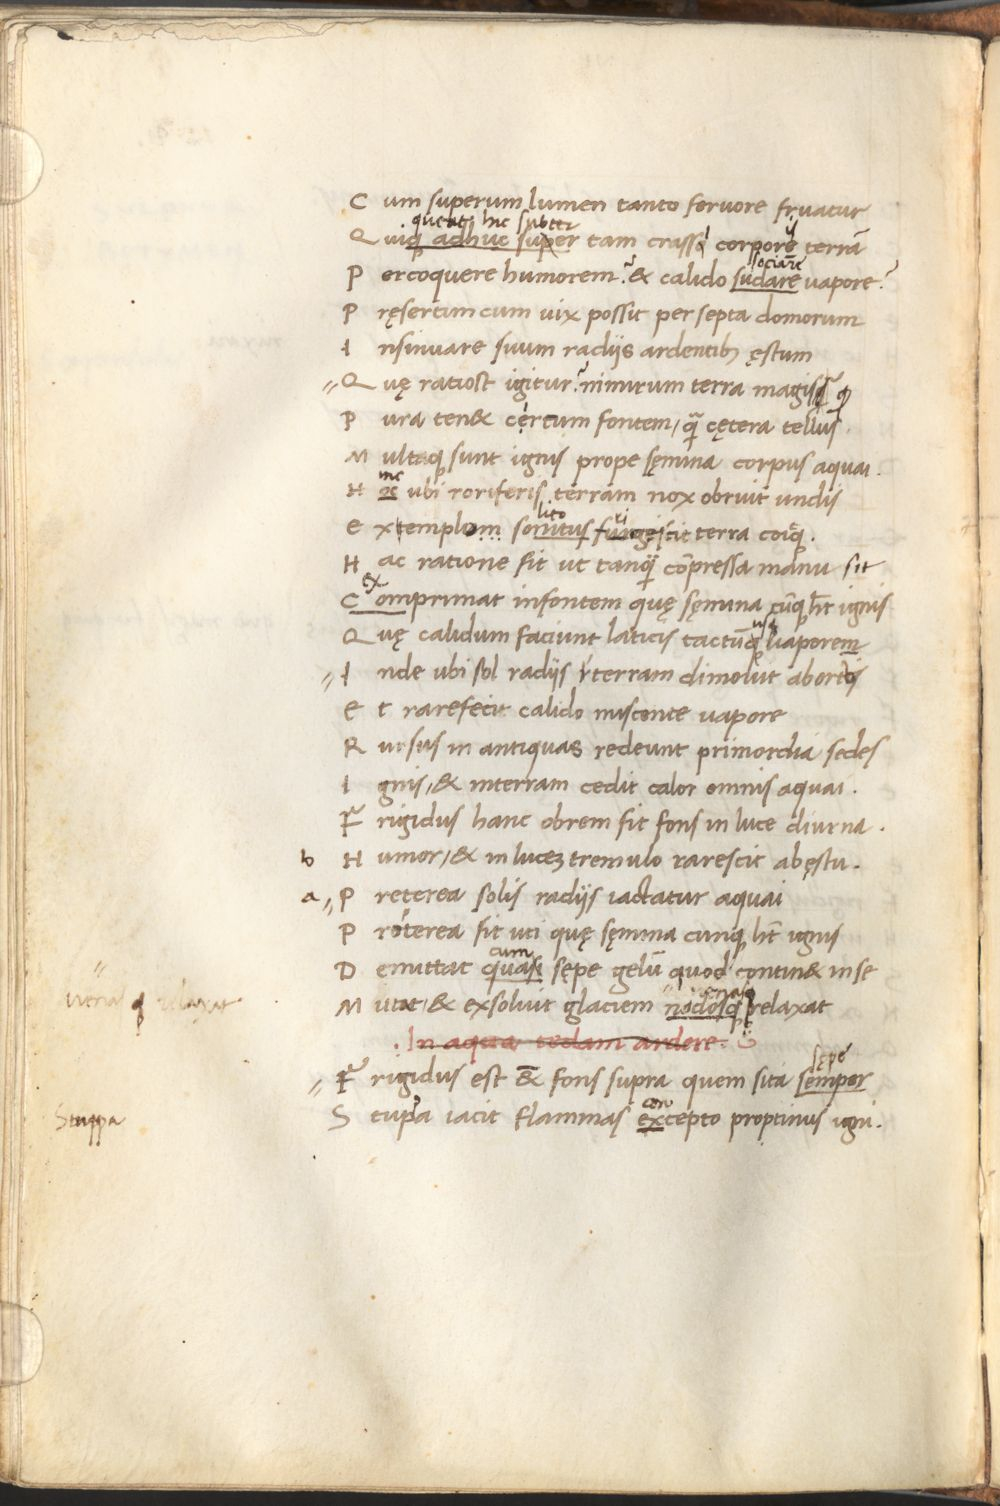 C um superum lumen tanto fervore fruatur
queat hic subter
Q uiq adhuc super tam crasso corpore terrā
sociare
P ercoquere humorem? & calido sudare vapore?
P ręsertim cum vix possit per septa domorum
I nsinuare suum radijs ardentib; ęstum
Q uę ratiost igitur? nimirum terra magis qđ
P ura ten& circum fontem, quā cętera tellus.
M ultaq; sunt ignis prope sęmina corpus aquai.
inc
H oc ubi roriferis terram nox obruit undis
lito
E xtemplom sonitus frigescit terra coiq;.
H ac ratione fit ut tanquā cōpressa manu sit
ex
C omprimat in fontem quę sęmina cūq; hēt ignis
Q uę calidum faciunt laticis tactūq; vaporem
I nde ubi sol radijs terram dimovit abortis
E t rarefecit calido miscente vapore
R ursus in antiquas redeunt primordia sedes
I gnis, & in terram cedit calor omnis aquai.
F rigidus hanc obrem fit fons in luce diurna.
b H umor, & in lucem tremulo rarescit ab ęstu.
a P reterea solis radijs iactatur aquai
P roterea fit uti quę sęmina cunq; hēt ignis
cum
D emittat quasi sępe gelū quod contin& in se
M itat, & exsolvit glaciem nodosq; relaxat
relaxat
. In aqua tedam ardere.
sępe
F rigidus est & fons supra quem sita semper
con
S tuppa iacit flammas excepto protinus igni.
Stuppa